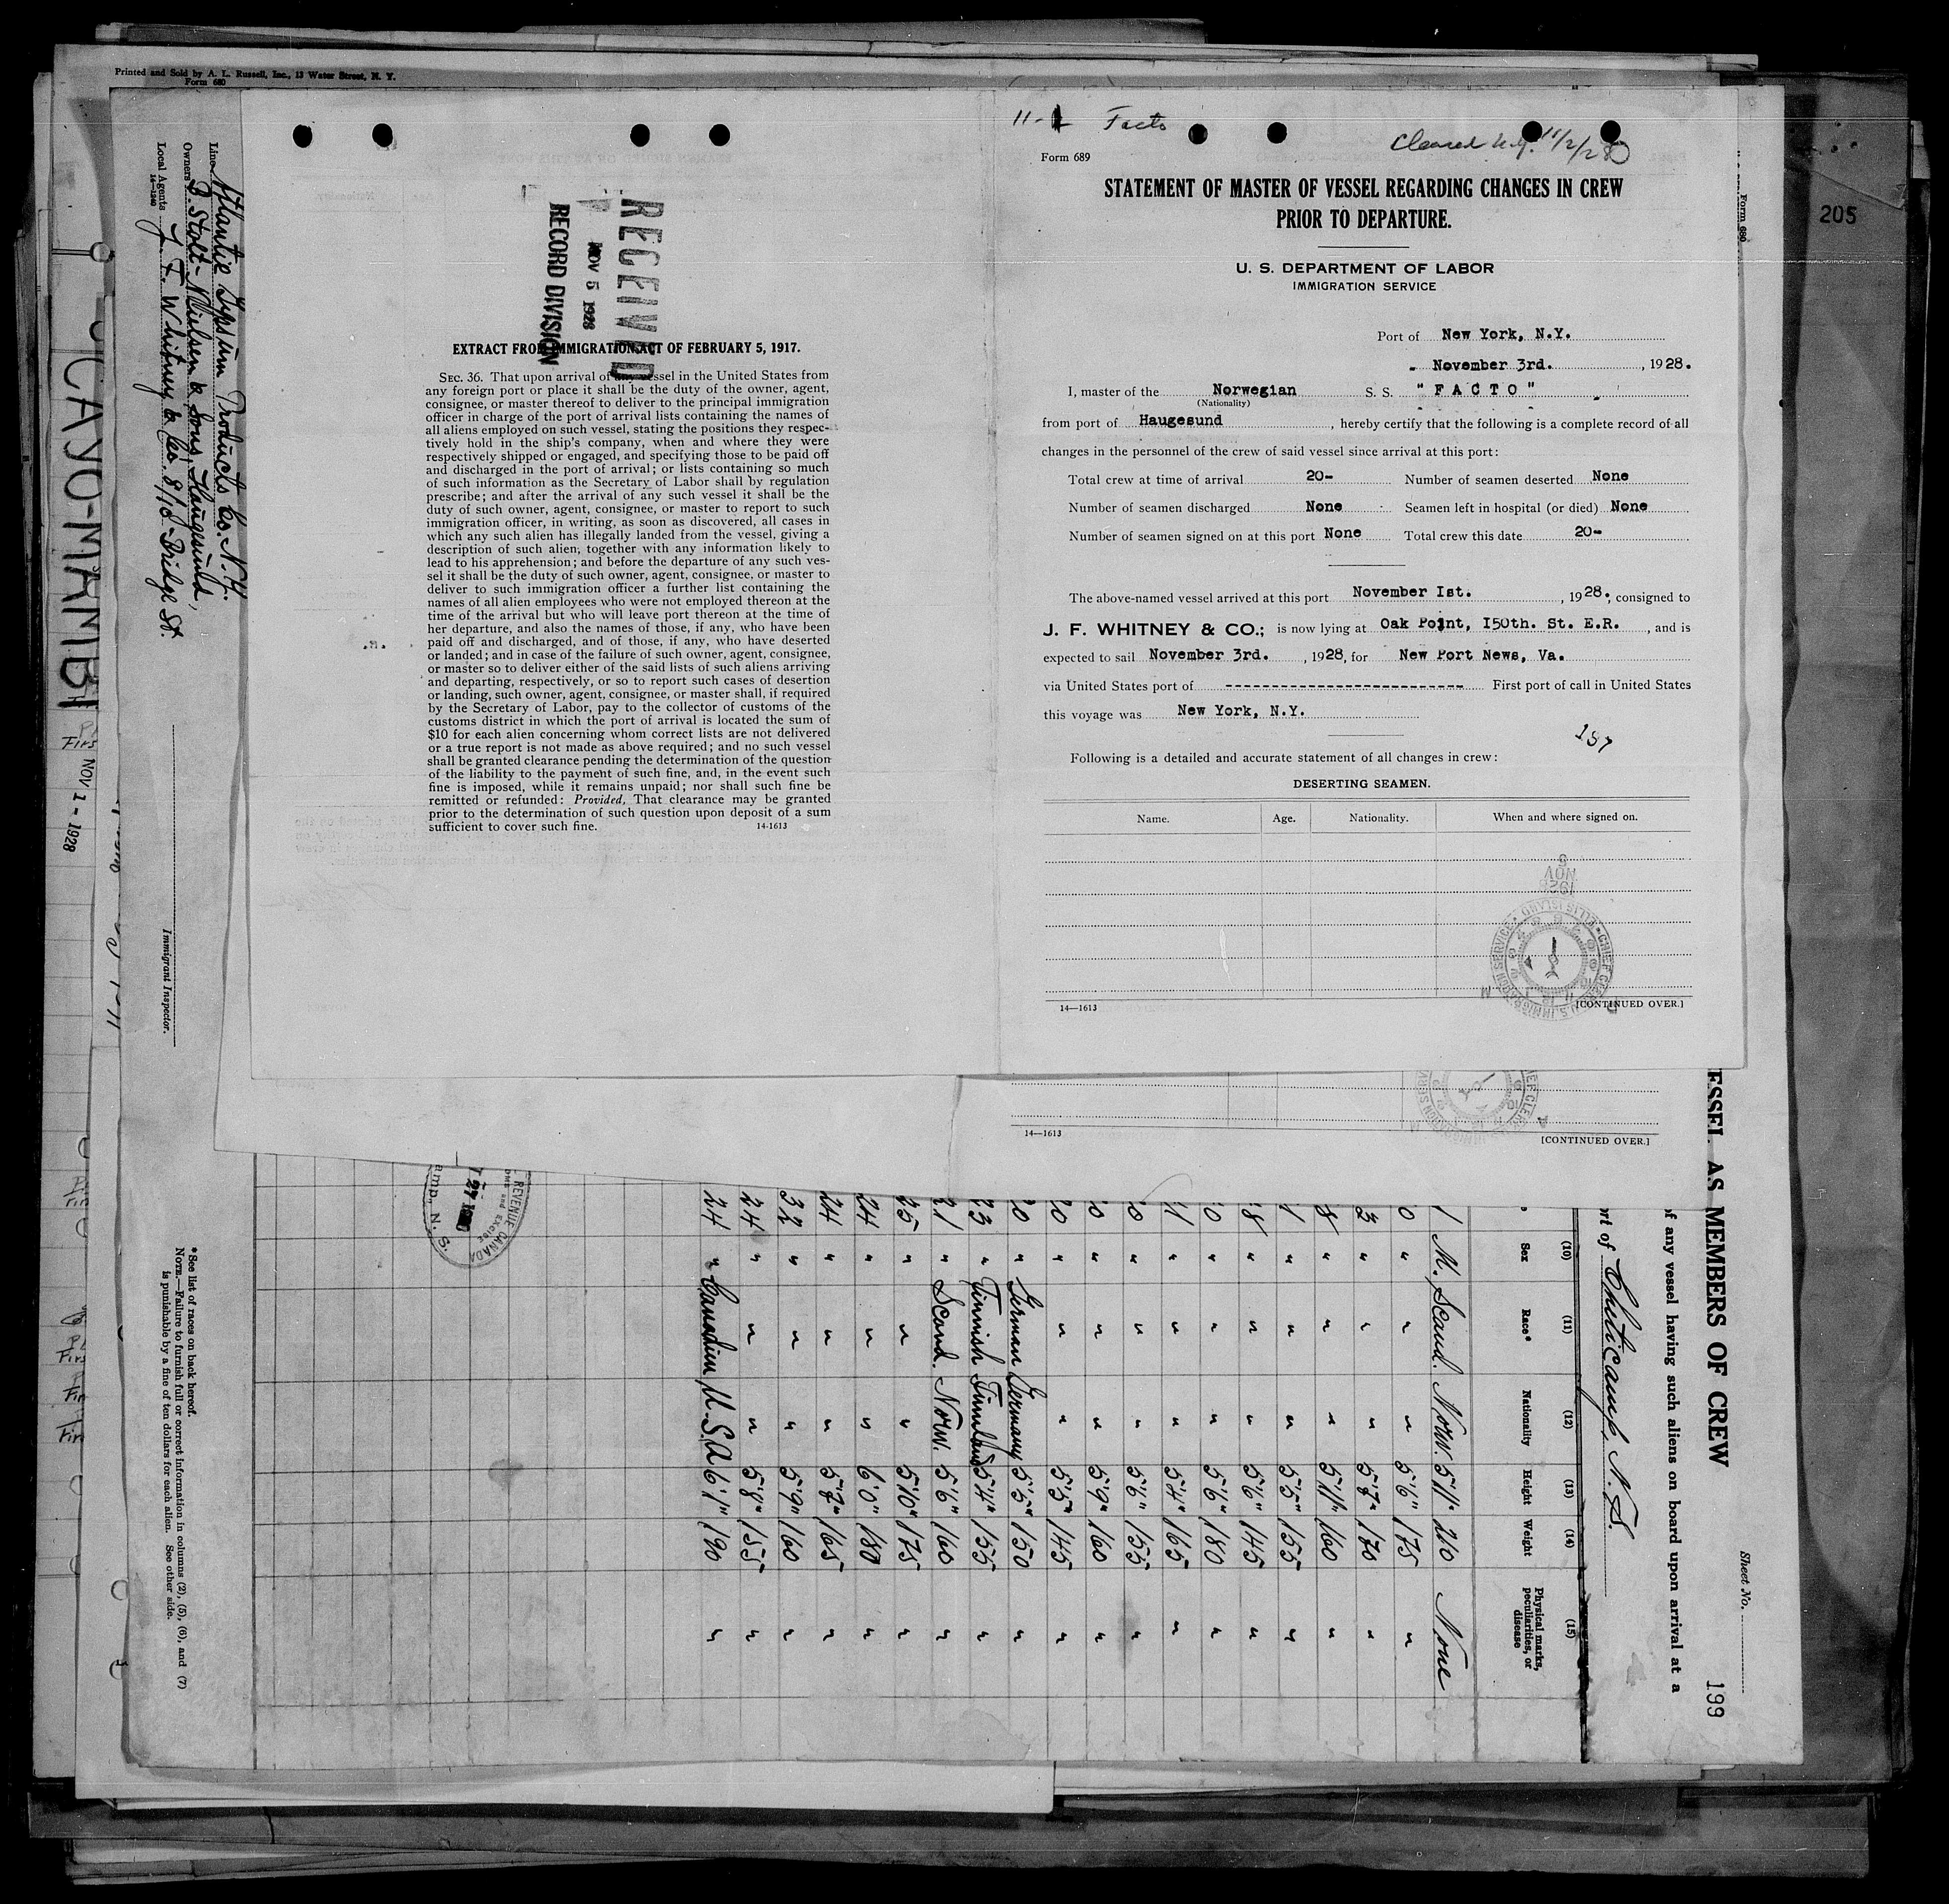 Printed and Sold by A. L. Russell, Inc., 13 Water Street, N. Y.
Form 680
RECEIVED
NOV 5 1928
RECORD DIVISION
EXTRACT FROM IMMIGRATION ACT OF FEBRUARY 5, 1917.
SEC. 36. That upon arrival of any vessel in the United States from
any foreign port or place it shall be the duty of the owner, agent,
consignee, or master thereof to deliver to the principal immigration
officer in charge of the port of arrival lists containing the names of
all aliens employed on such vessel, stating the positions they respec-
tively hold in the ship's company, when and where they were
respectively shipped or engaged, and specifying those to be paid off
and discharged in the port of arrival; or lists containing so much
of such information as the Secretary of Labor shall by regulation
prescribe; and after the arrival of any such vessel it shall be the
duty of such owner, agent, consignee, or master to report to such
immigration officer, in writing, as soon as discovered, all cases in
which any such alien has illegally landed from the vessel, giving a
description of such alien, together with any information likely to
lead to his apprehension; and before the departure of any such ves-
sel it shall be the duty of such owner, agent, consignee, or master to
deliver to such immigration officer a further list containing the
names of all alien employees who were not employed thereon at the
time of the arrival but who will leave port thereon at the time of
her departure, and also the names of those, if any, who have been
paid off and discharged, and of those, if any, who have deserted
or landed; and in case of the failure of such owner, agent, consignee,
or master so to deliver either of the said lists of such aliens arriving
and departing, respectively, or so to report such cases of desertion
or landing, such owner, agent, consignee, or master shall, if required
by the Secretary of Labor, pay to the collector of customs of the
customs district in which the port of arrival is located the sum of
$10 for each alien concerning whom correct lists are not delivered
or a true report is not made as above required; and no such vessel
shall be granted clearance pending the determination of the question
of the liability to the payment of such fine, and, in the event such
fine is imposed, while it remains unpaid; nor shall such fine be
remitted or refunded: Provided, That clearance may be granted
prior to the determination of such question upon deposit of a sum
sufficient to cover such fine. 14-1613
11-1 Facto
Cleared N.Y. 11/2/28
Form 689
STATEMENT OF MASTER OF VESSEL REGARDING CHANGES IN CREW
PRIOR TO DEPARTURE.
U. S. DEPARTMENT OF LABOR
IMMIGRATION SERVICE
Port of New York, N.Y.
November 3rd. , 1928.
I, master of the Norwegian S. S. "FACTO"
(Nationality)
from port of Haugesund , hereby certify that the following is a complete record of all
changes in the personnel of the crew of said vessel since arrival at this port:
Total crew at time of arrival 20- Number of seamen deserted None
Number of seamen discharged None Seamen left in hospital (or died) None
Number of seamen signed on at this port None Total crew this date 20-
The above-named vessel arrived at this port November Ist. , 1928., consigned to
J. F. WHITNEY & CO.; is now lying at Oak Point, I50th. St. E.R. , and is
expected to sail November 3rd. , 1928, for New Port News, Va.
via United States port of -------------------------- First port of call in United States
this voyage was New York, N.Y.
187
Following is a detailed and accurate statement of all changes in crew:
DESERTING SEAMEN.
Name. Age. Nationality. When and where signed on.
NOV 5
1928
CHIEF CLERK U.S. IMMIGRATION SERVICE ELLIS ISLAND
14—1613 [CONTINUED OVER.]
14—1613 [CONTINUED OVER.]
205
Form 680
Line Atlantic Gypsum Products Co. N.Y.
Owners B. Stolt-Nielsen & Sons, Haugesund,
Local Agents J. F. Whitney & Co. 8/10 Bridge St.
14—1240
Immigrant Inspector.
CAYO-MAMBI
NOV 1 - 1928
Sheet No.
199
ESSEL AS MEMBERS OF CREW
of any vessel having such aliens on board upon arrival at a
rt of Cheticamp, N.S.
(10) (11) (12) (13) (14) (15)
Sex Race* Nationality Height Weight Physical marks, peculiarities, or disease
1 M. Scand. Norw. 5'11" 210 None
0 " " " 5'6" 175 "
3 " " " 5'7" 170 "
8 " " " 5'11" 160 "
1 " " " 5'5" 155 "
8 " " " 5'6" 145 "
0 " " " 5'6" 180 "
1 " " " 5'4" 165 "
0 " " " 5'6" 155 "
0 " " " 5'9" 160 "
0 " " " 5'5" 145 "
20 " German Germany 5'5" 150 "
23 " Finnish Finnland 5'4" 155 "
21 " Scand. Norw. 5'6" 160 "
25 " " " 5'10" 175 "
24 " " " 6'0" 180 "
24 " " " 5'7" 165 "
32 " " " 5'9" 160 "
24 " " " 5'8" 155 "
24 " Canadien U.S.A 6'1" 190 "
REVENUE, CANADA
and EXCISE
27
amp, N. S.
*See list of races on back hereof.
NOTE.—Failure to furnish full or correct information in columns (2), (5), (6), and (7)
is punishable by a fine of ten dollars for each alien. See other side.